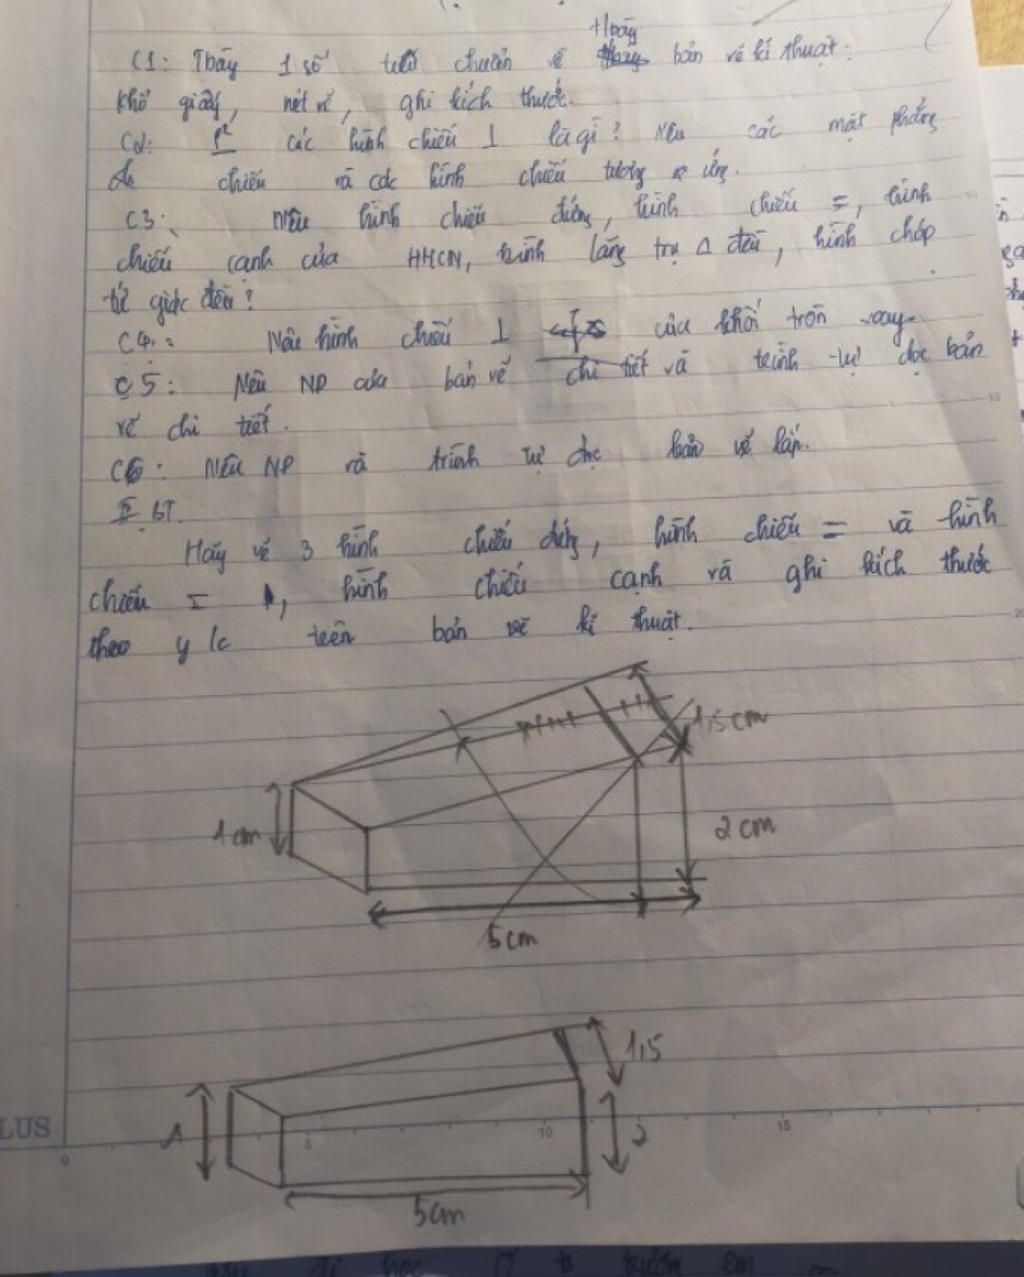 thbày
C1: Tbày 1 số tiêu chuẩn về bản vẽ kĩ thuật:
khổ giấy, nét vẽ, ghi kích thước.
C2: P² các hình chiếu ⊥ là gì? Nêu các mặt phẳng
chiếu và các hình chiếu tương ứng.
C3: Nêu hình chiếu đứng, hình chiếu =, hình
chiếu cạnh của HHCN, hình lăng trụ Δ đều, hình chóp
tứ giác đều?
C4: Nêu hình chiếu ⊥ của khối tròn xoay
C5: Nêu ND của bản vẽ chi tiết và trình tự đọc bản
vẽ chi tiết.
C6: Nêu ND và trình tự đọc bản vẽ lắp.
II. BT
Hãy vẽ 3 hình chiếu đứng, hình chiếu = và hình
chiếu, hình chiếu cạnh và ghi kích thước
theo y/c trên bản vẽ kĩ thuật.
1,5 cm
1 cm
2 cm
5 cm
1,5
1
2
5cm
LUS
0 5 10 15